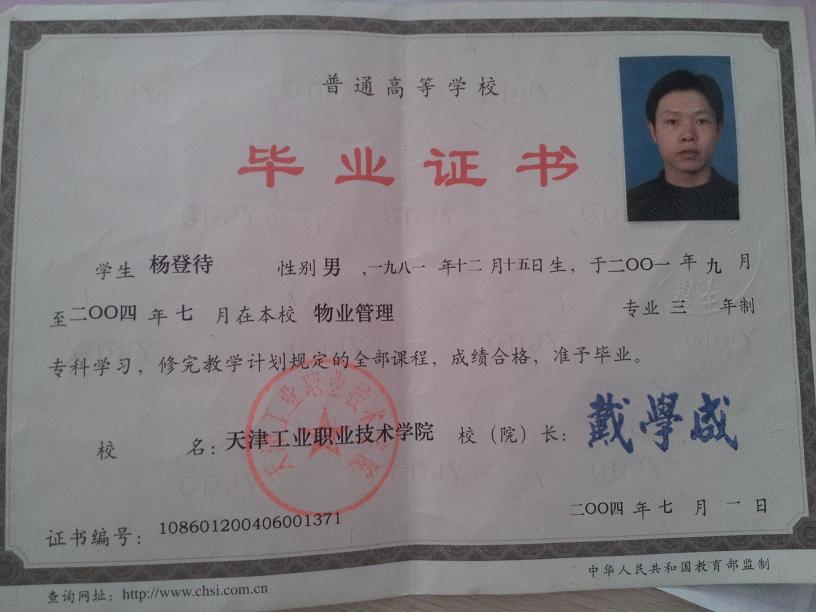 普通高等学校
毕业证书
学生 杨登待 性别 男 ,一九八一 年十二 月十五日生，于二〇〇一 年 九 月
至二〇〇四 年 七 月在本校 物业管理 专业 三 年制
专科学习，修完教学计划规定的全部课程，成绩合格，准予毕业。
校 名：天津工业职业技术学院 校（院）长：戴學咸
天津工业职业技术学院
二〇〇四 年 七 月 一 日
证书编号：108601200406001371
中华人民共和国教育部监制
查询网址：http://www.chsi.com.cn